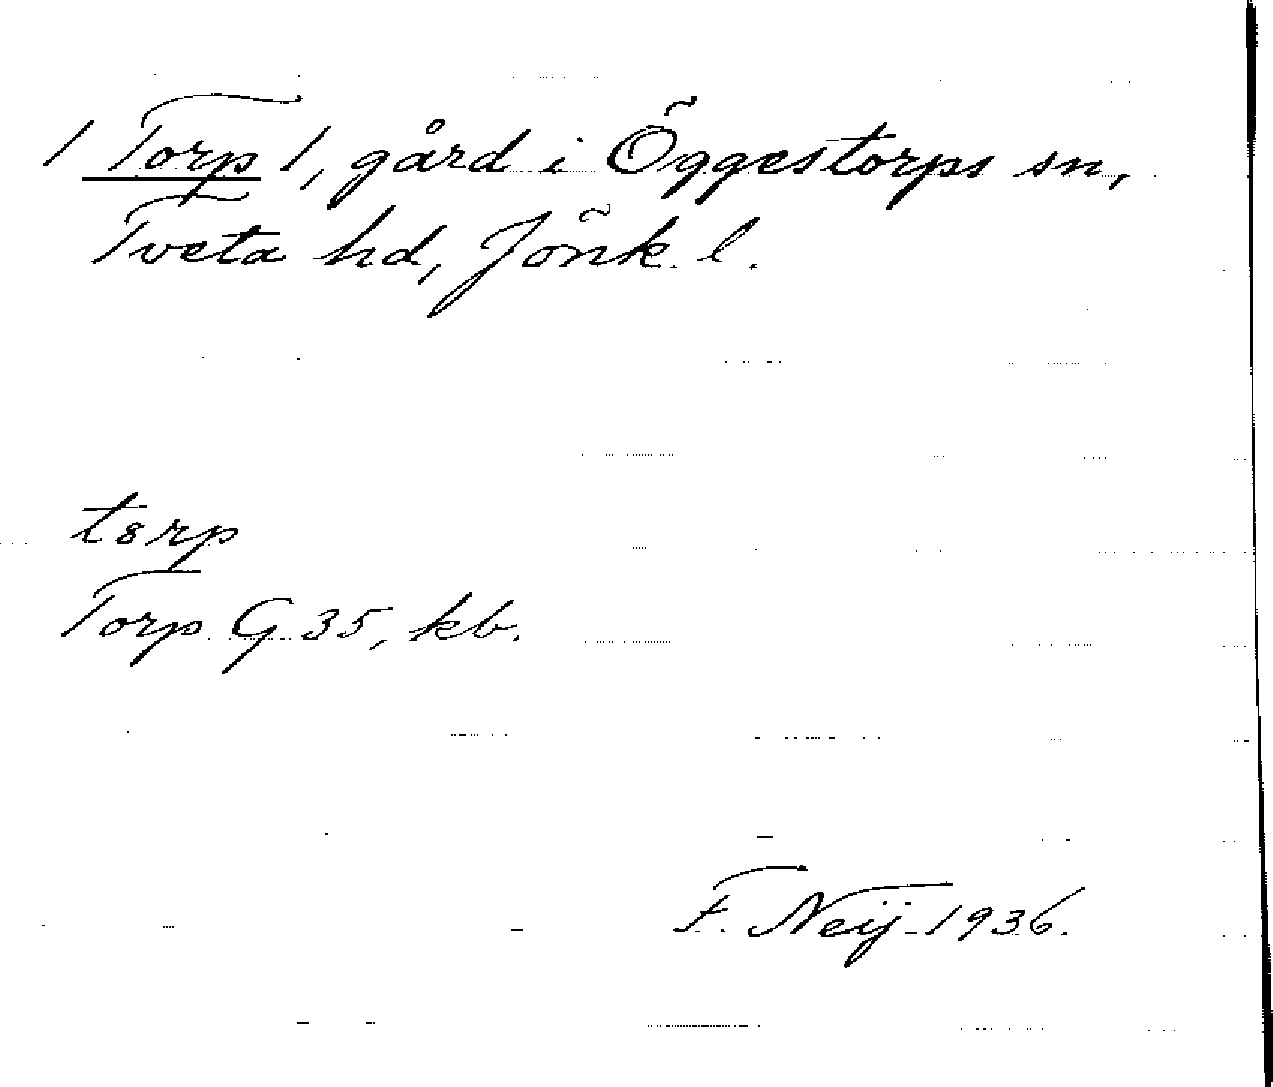 / Torp 1, gård i Öggestorps sn,
Tveta hd, Jönk. l.
tɜrp
Torp G 35, kb.
F. Neij 1936.